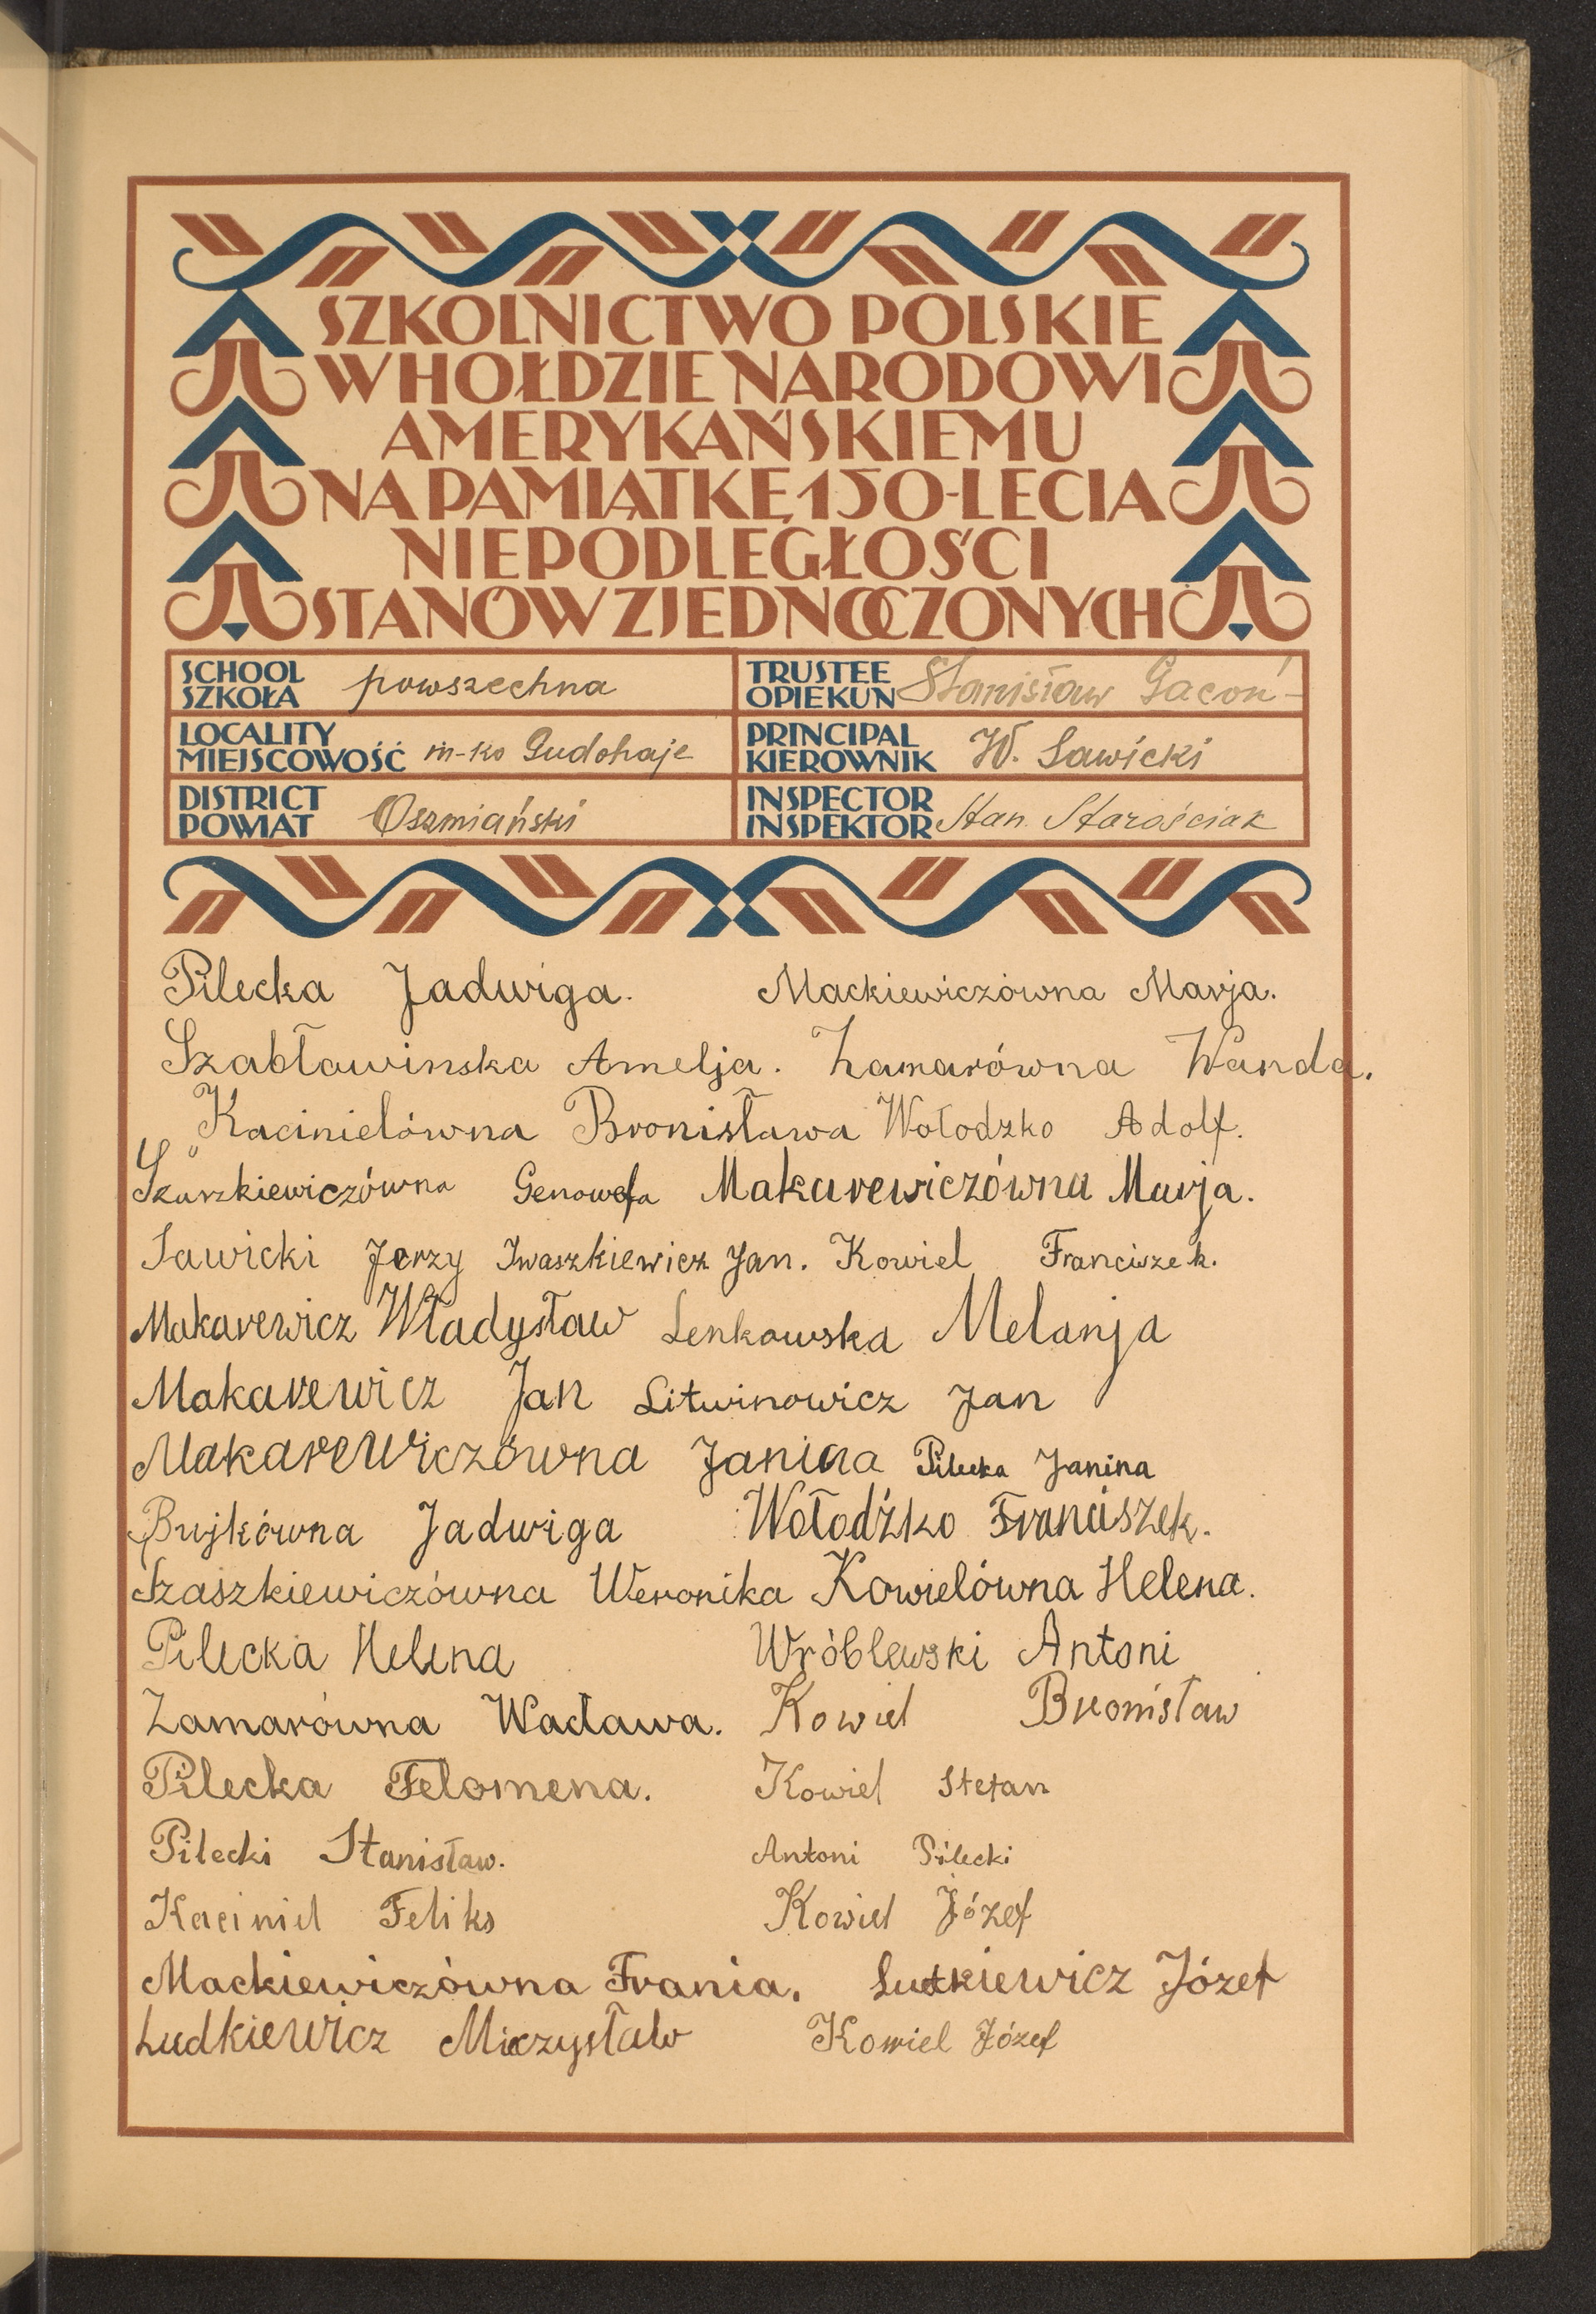 SZKOLNICTWO POLSKIE
W HOŁDZIE NARODOWI
AMERYKAŃSKIEMU
NA PAMIĄTKĘ 150-LECIA
NIEPODLEGŁOŚCI
STANÓW ZJEDNOCZONYCH
SCHOOL
SZKOŁA powszechna
TRUSTEE
OPIEKUN Stanisław Gacoń
LOCALITY
MIEJSCOWOŚĆ m-ko Gudohaje
PRINCIPAL
KIEROWNIK W. Sawicki
DISTRICT
POWIAT Oszmiański
INSPECTOR
INSPEKTOR Stan. Starościak
Pilecka Jadwiga. Mackiewiczówna Marja.
Szabławinska Amelja. Zamarówna Wanda.
Kacinielówna Bronisława Wołodzko Adolf.
Szurzkiewiczówna Genowefa Makarewiczówna Marja.
Sawicki Jerzy Iwaszkiewicz Jan. Kowiel Franciszek.
Makarewicz Władysław Lenkowska Melanja
Makarewicz Jan Litwinowicz Jan
Makarewiczówna Janina Pilecka Janina
Bujkówna Jadwiga Wołodźko Franciszek.
Szaszkiewiczówna Weronika Kowielówna Helena.
Pilecka Helena Wróblewski Antoni
Zamarówna Wacława. Kowiel Bronisław
Pilecka Felomena. Kowiel Stefan
Pilecki Stanisław. Antoni Pilecki
Kaciniel Feliks Kowiel Józef
Mackiewiczówna Frania. Lutkiewicz Józef
Ludkiewicz Mieczysław Kowiel Józef